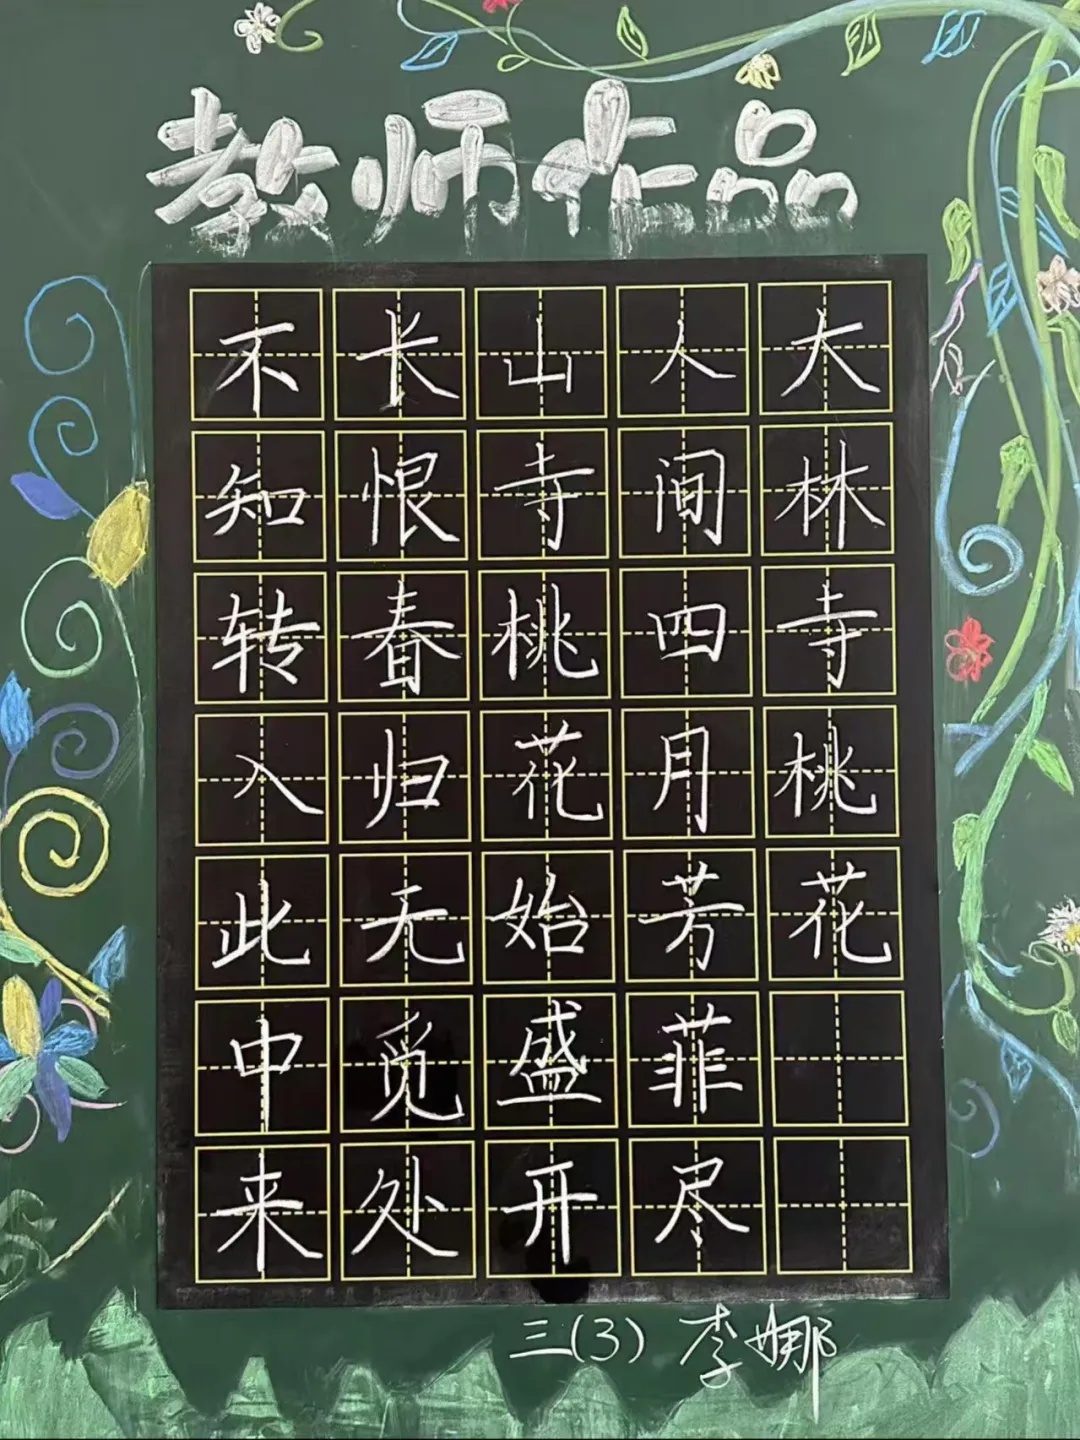 教师作品
大林寺桃花
人间四月芳菲尽
山寺桃花始盛开
长恨春归无觅处
不知转入此中来
三(3) 李娜